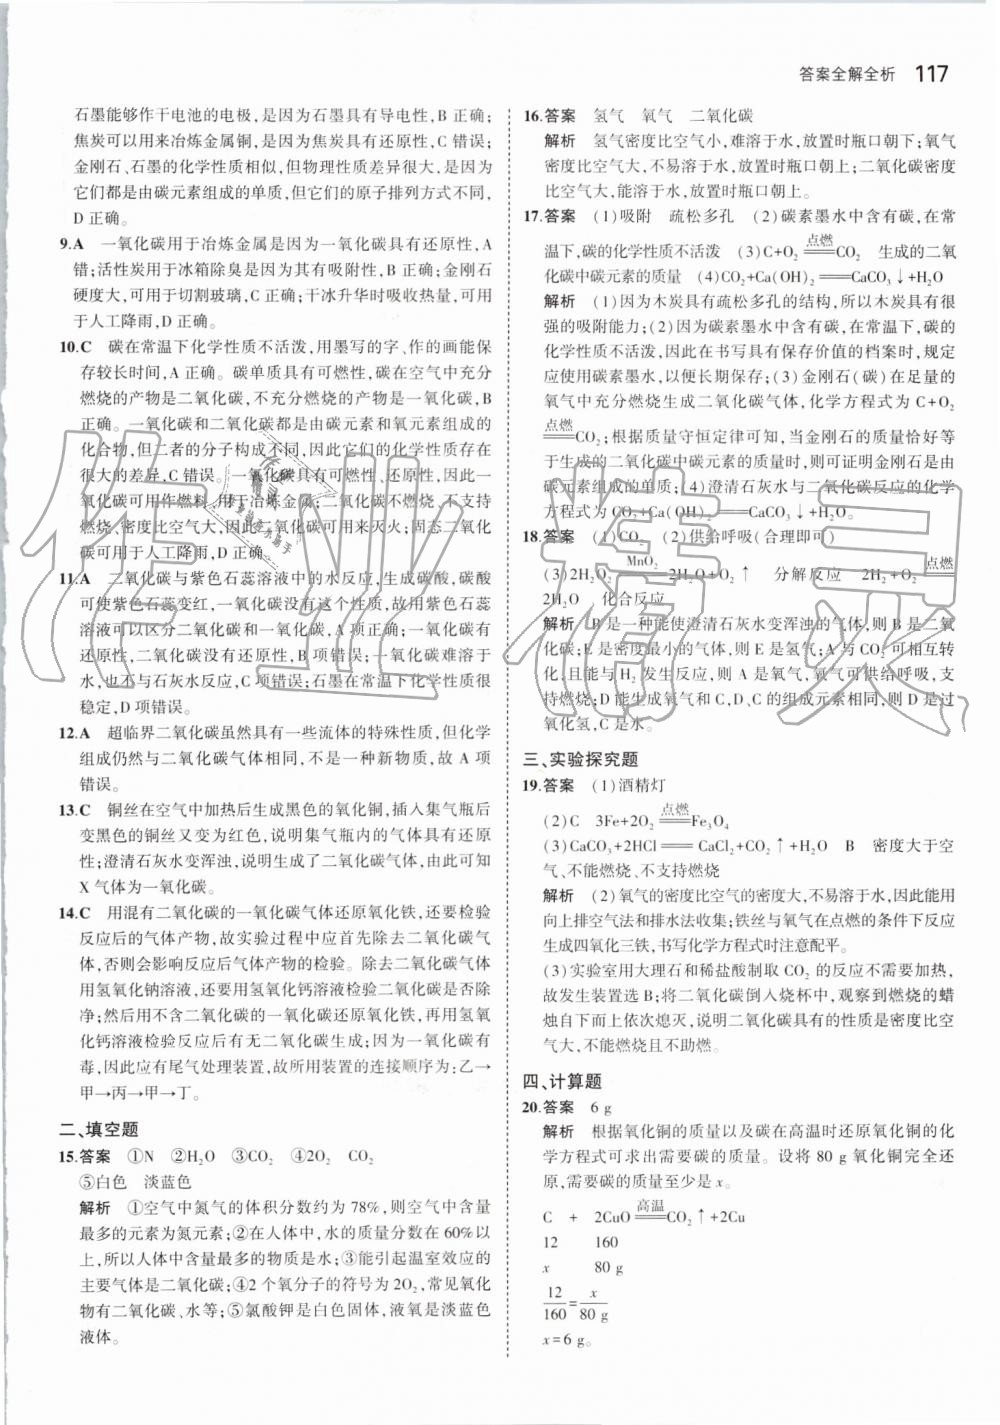 答案全解全析 117
石墨能够作干电池的电极,是因为石墨具有导电性,B 正确;
焦炭可以用来冶炼金属铜,是因为焦炭具有还原性,C 错误;
金刚石、石墨的化学性质相似,但物理性质差异很大,是因为
它们都是由碳元素组成的单质,但它们的原子排列方式不同,
D 正确。
9.A 一氧化碳用于冶炼金属是因为一氧化碳具有还原性,A
错;活性炭用于冰箱除臭是因为其有吸附性,B 正确;金刚石
硬度大,可用于切割玻璃,C 正确;干冰升华时吸收热量,可用
于人工降雨,D 正确。
10.C 碳在常温下化学性质不活泼,用墨写的字、作的画能保
存较长时间,A 正确。碳单质具有可燃性,碳在空气中充分
燃烧的产物是二氧化碳,不充分燃烧的产物是一氧化碳,B
正确。一氧化碳和二氧化碳都是由碳元素和氧元素组成的
化合物,但二者的分子构成不同,因此它们的化学性质存在
很大的差异,C 错误。一氧化碳具有可燃性、还原性,因此一
氧化碳可用作燃料,用于冶炼金属;二氧化碳不燃烧、不支持
燃烧,密度比空气大,因此二氧化碳可用来灭火;固态二氧化
碳可用于人工降雨,D 正确。
11.A 二氧化碳与紫色石蕊溶液中的水反应,生成碳酸,碳酸
可使紫色石蕊变红,一氧化碳没有这个性质,故用紫色石蕊
溶液可以区分二氧化碳和一氧化碳,A 项正确;一氧化碳有还
原性,二氧化碳没有还原性,B 项错误;一氧化碳难溶于
水,也不与石灰水反应,C 项错误;石墨在常温下化学性质很
稳定,D 项错误。
12.A 超临界二氧化碳虽然具有一些流体的特殊性质,但化学
组成仍然与二氧化碳气体相同,不是一种新物质,故 A 项
错误。
13.C 铜丝在空气中加热后生成黑色的氧化铜,插入集气瓶后
变黑色的铜丝又变为红色,说明集气瓶内的气体具有还原
性;澄清石灰水变浑浊,说明生成了二氧化碳气体,由此可知
X 气体为一氧化碳。
14.C 用混有二氧化碳的一氧化碳气体还原氧化铁,还要检验
反应后的气体产物,故实验过程中应首先除去二氧化碳气
体,否则会影响反应后气体产物的检验。除去二氧化碳气体
用氢氧化钠溶液,还要用氢氧化钙溶液检验二氧化碳是否除
净;然后用不含二氧化碳的一氧化碳还原氧化铁,再用氢氧
化钙溶液检验反应后有无二氧化碳生成;因为一氧化碳有
毒,因此应有尾气处理装置,故所用装置的连接顺序为:乙→
甲→丙→甲→丁。
二、填空题
15.答案 ①N ②H₂O ③CO₂ ④2O₂ CO₂
⑤白色 淡蓝色
解析 ①空气中氮气的体积分数约为 78%,则空气中含量
最多的元素为氮元素;②在人体中,水的质量分数在 60%以
上,所以人体中含量最多的物质是水;③能引起温室效应的
主要气体是二氧化碳;④2 个氧分子的符号为 2O₂,常见氧化
物有二氧化碳、水等;⑤氯酸钾是白色固体,液氧是淡蓝色
液体。
16.答案 氢气 氧气 二氧化碳
解析 氢气密度比空气小,难溶于水,放置时瓶口朝下;氧气
密度比空气大,不易溶于水,放置时瓶口朝上;二氧化碳密度
比空气大,能溶于水,放置时瓶口朝上。
17.答案 (1)吸附 疏松多孔 (2)碳素墨水中含有碳,在常
温下,碳的化学性质不活泼 (3)C+O₂ 点燃═══ CO₂ 生成的二氧
化碳中碳元素的质量 (4)CO₂+Ca(OH)₂═══CaCO₃↓+H₂O
解析 (1)因为木炭具有疏松多孔的结构,所以木炭具有很
强的吸附能力;(2)因为碳素墨水中含有碳,在常温下,碳的
化学性质不活泼,所以在书写具有保存价值的档案时,规定
应使用碳素墨水,以便长期保存;(3)金刚石(碳)在足量的
氧气中充分燃烧生成二氧化碳气体,化学方程式为 C+O₂
点燃═══ CO₂;根据质量守恒定律可知,当金刚石的质量恰好等
于生成的二氧化碳中碳元素的质量时,则可证明金刚石是由
碳元素组成的单质;(4)澄清石灰水与二氧化碳反应的化学
方程式为 CO₂+Ca(OH)₂═══CaCO₃↓+H₂O。
18.答案 (1)CO₂ (2)供给呼吸(合理即可)
(3)2H₂O₂ MnO₂═══ 2H₂O+O₂↑ 分解反应 2H₂+O₂ 点燃═══
2H₂O 化合反应
解析 B 是一种能使澄清石灰水变浑浊的气体,则 B 是二氧
化碳;E 是密度最小的气体,则 E 是氢气;A 与 CO₂ 可相互转
化,且能与 H₂ 发生反应,则 A 是氧气,氧气可供给呼吸,支
持燃烧;D 能生成氧气和 C,D、C 的组成元素相同,则 D 是过
氧化氢,C 是水。
三、实验探究题
19.答案 (1)酒精灯
(2)C 3Fe+2O₂ 点燃═══ Fe₃O₄
(3)CaCO₃+2HCl═══CaCl₂+CO₂↑+H₂O B 密度大于空
气、不能燃烧、不支持燃烧
解析 (2)氧气的密度比空气的密度大,不易溶于水,因此能用
向上排空气法和排水法收集;铁丝与氧气在点燃的条件下反应
生成四氧化三铁,书写化学方程式时注意配平。
(3)实验室用大理石和稀盐酸制取 CO₂ 的反应不需要加热,
故发生装置选 B;将二氧化碳倒入烧杯中,观察到燃烧的蜡
烛自下而上依次熄灭,说明二氧化碳具有的性质是密度比空
气大,不能燃烧且不助燃。
四、计算题
20.答案 6 g
解析 根据氧化铜的质量以及碳在高温时还原氧化铜的化
学方程式可求出需要碳的质量。设将 80 g 氧化铜完全还
原,需要碳的质量至少是 x。
C + 2CuO 高温═══ CO₂↑+2Cu
12 160
x 80 g
12/160 = x/80 g
x=6 g。
作业精灵